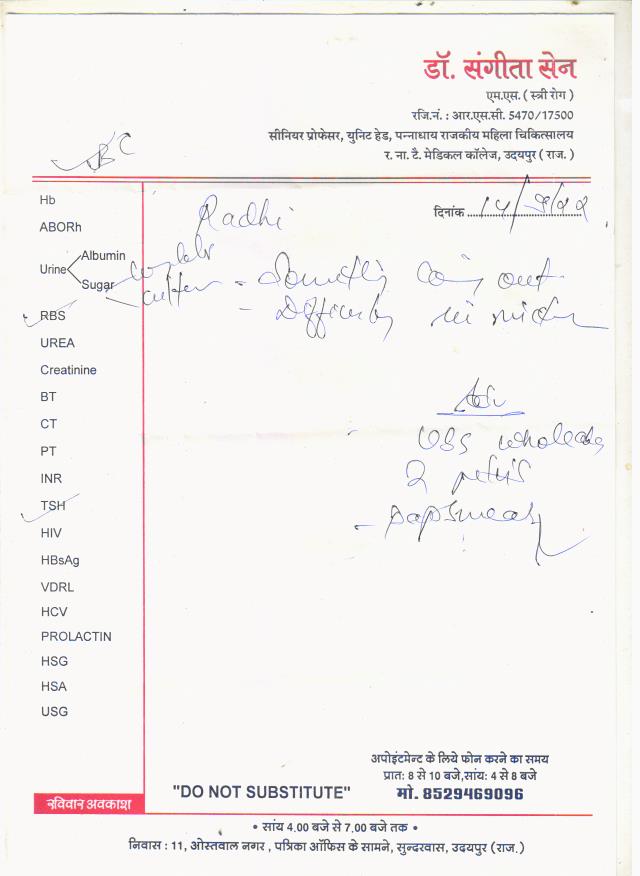 डॉ. संगीता सेन
एम.एस. ( स्त्री रोग )
रजि.नं. : आर.एस.सी. 5470/17500
सीनियर प्रोफेसर, युनिट हेड, पन्नाधाय राजकीय महिला चिकित्सालय
र. ना. टै. मेडिकल कॉलेज, उदयपुर ( राज. )
दिनांक
Radhi
Hb
ABORh
Urine Albumin
Sugar
RBS
UREA
Creatinine
BT
CT
PT
INR
TSH
HIV
HBsAg
VDRL
HCV
PROLACTIN
HSG
HSA
USG
out
Difficulty in
Adv
2
- Papsmear
रविवार अवकाश
"DO NOT SUBSTITUTE"
अपोइंटमेन्ट के लिये फोन करने का समय
प्रातः 8 से 10 बजे,सांयः 4 से 8 बजे
मो. 8529469096
• सांय 4.00 बजे से 7.00 बजे तक •
निवास : 11, ओस्तवाल नगर , पत्रिका ऑफिस के सामने, सुन्दरवास, उदयपुर (राज.)